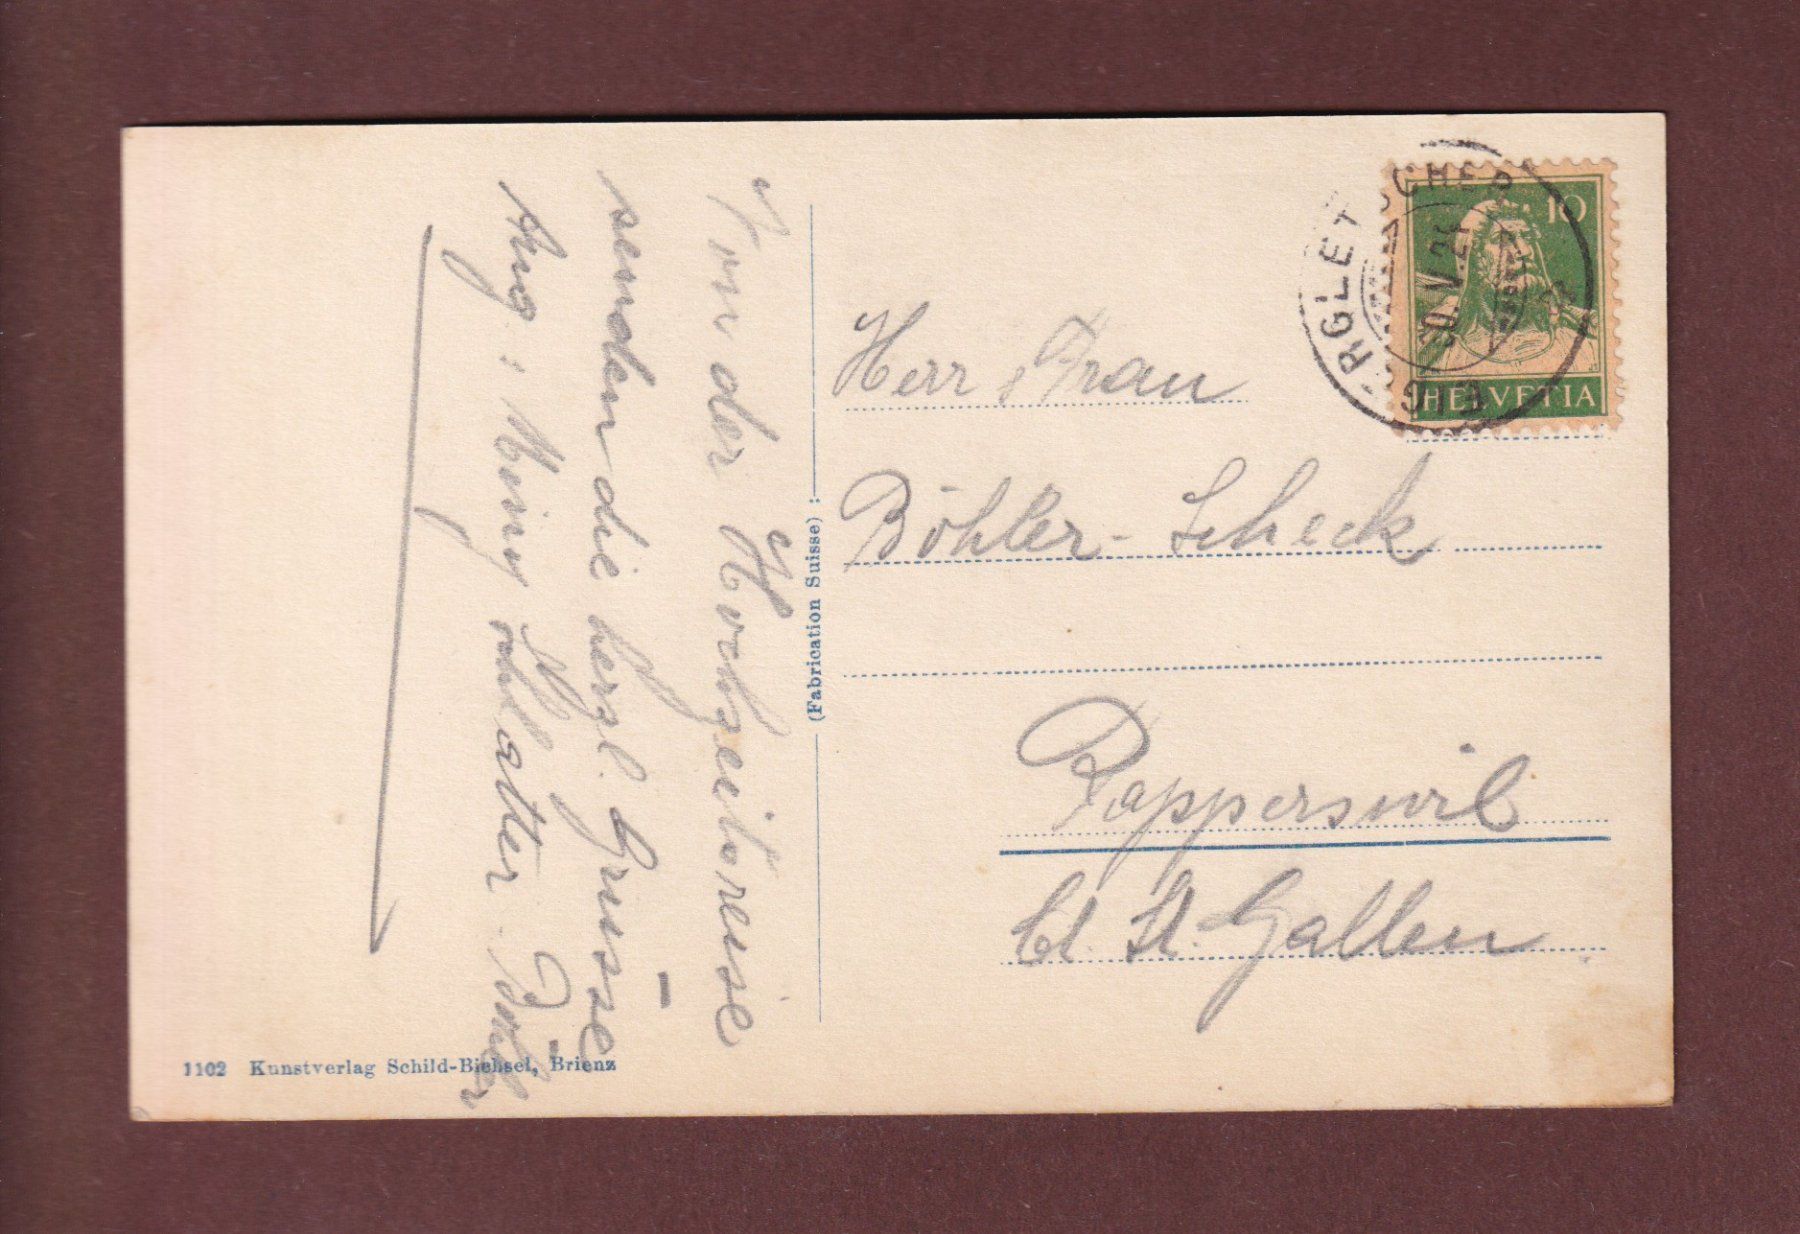 Von der Hochzeitsreise
senden die herzl. Grüsse
Aug. & Miny Schlatter-
(Fabrication Suisse)
Herr & Frau
Böhler-Scheck
Rapperswil
Ct. St. Gallen
EIGERGLETSCHER
V.
10
HELVETIA
1102 Kunstverlag Schild-Bichsel, Brienz